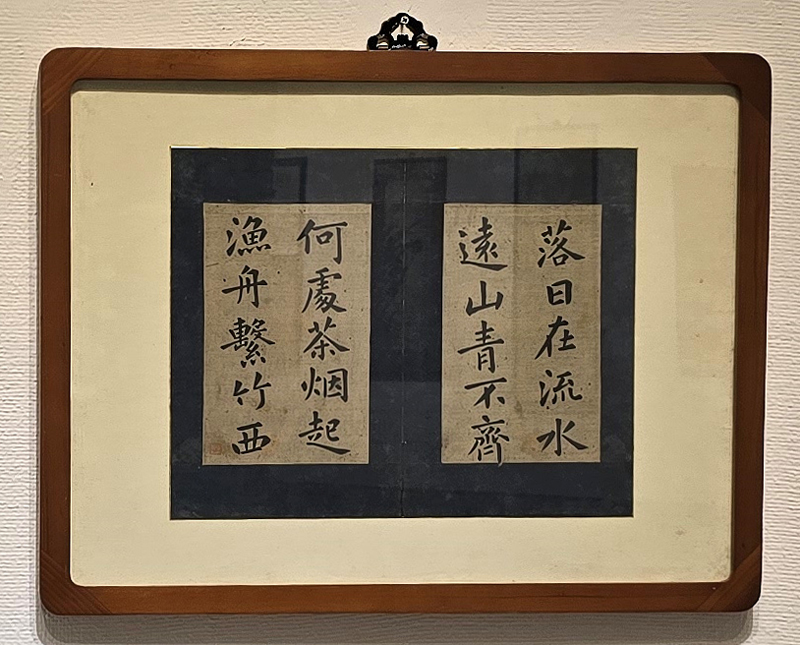 落日在流水
遠山青不齊
何處茶烟起
漁舟繫竹西